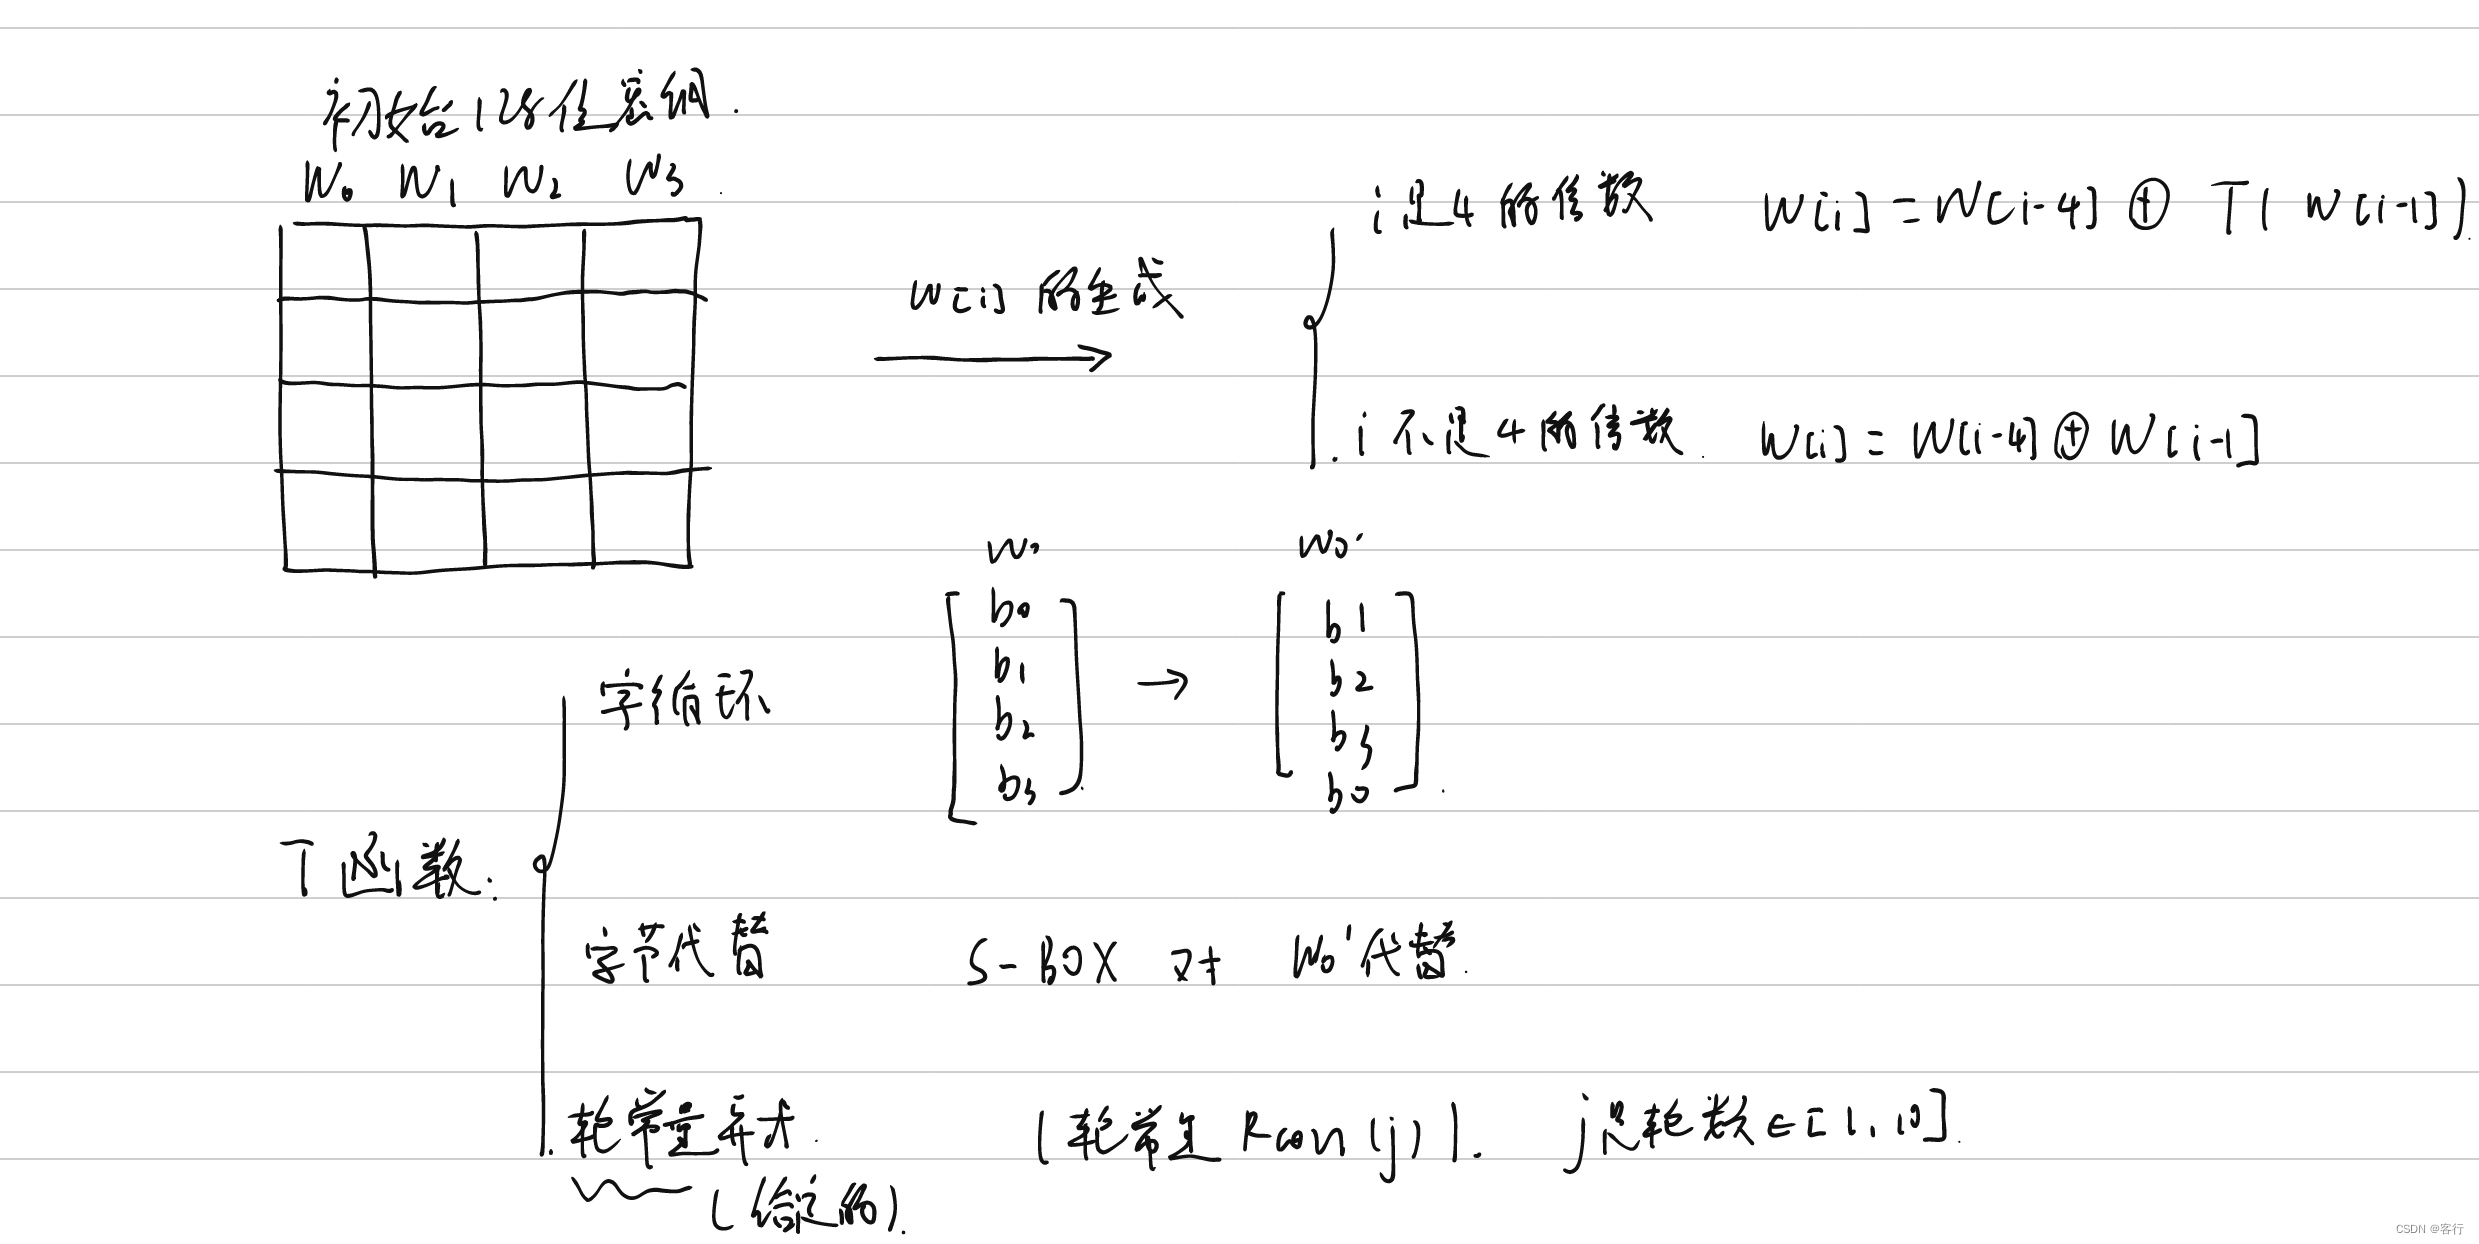 初始128位密钥.
W0 W1 W2 W3
i是4的倍数 W[i] = W[i-4] ⊕ T( W[i-1])
W[i]的生成
i不是4的倍数. W[i] = W[i-4] ⊕ W[i-1]
W0 W0'
b0 b1
b1 b2
b2 → b3
b3 b0
字循环
T函数:
字节代替 S-BOX 对 W0'代替.
轮常量异或. (轮常量 Rcon(j)). j是轮数∈[1,10].
(给定的).
CSDN @客行